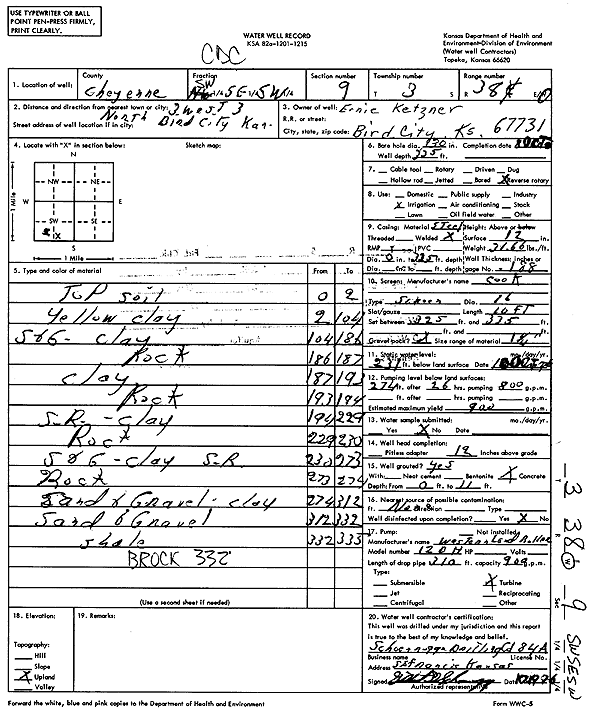 USE TYPEWRITER OR BALL
POINT PEN-PRESS FIRMLY,
PRINT CLEARLY.
WATER WELL RECORD
KSA 82a-1201-1215
Kansas Department of Health and
Environment-Division of Environment
(Water well Contractors)
Topeka, Kansas 66620
CDC
1. Location of well: County Cheyenne Fraction SW 1/4 SE 1/4 SW 1/4 Section number 9 Township number T 3 S Range number R 38 E/W
2. Distance and direction from nearest town or city: 3 West 3 North Bird City Kan.
Street address of well location if in city:
3. Owner of well: Ernie Ketzner
R.R. or street:
City, state, zip code: Bird City, Ks. 67731
4. Locate with "X" in section below: Sketch map:
N
NW NE
W E
SW SE
X
S
1 Mile
1 Mile
6. Bore hole dia. 30 in. Completion date
Well depth 335 ft.
7. Cable tool Rotary Driven Dug
Hollow rod Jetted Bored X Reverse rotary
8. Use: Domestic Public supply Industry
X Irrigation Air conditioning Stock
Lawn Oil field water Other
9. Casing: Material Steel Height: Above or below
Threaded Welded X Surface 12 in.
RMP PVC Weight 31.66 lbs./ft.
Dia. in. to 325 ft. depth Wall Thickness: inches or
Dia. in. to ft. depth gage No. .188
10. Screen: Manufacturer's name Cook
Type Dia. 16
Slot/gauze Length 10 FT
Set between 325 ft. and 335 ft.
ft. and ft.
Gravel pack? Size range of material
11. Static water level: mo./day/yr.
231 ft. below land surface Date
12. Pumping level below land surfaces:
274 ft. after 26 hrs. pumping 800 g.p.m.
ft. after hrs. pumping g.p.m.
Estimated maximum yield 900 g.p.m.
13. Water sample submitted: mo./day/yr.
Yes X No Date
14. Well head completion:
Pitless adapter 12 Inches above grade
15. Well grouted? yes
With: Neat cement Bentonite X Concrete
Depth: From 0 ft. to 11 ft.
16. Nearest source of possible contamination:
ft. None Direction Type
Well disinfected upon completion? Yes X No
17. Pump: Not installed
Manufacturer's name Western Land Roller
Model number 120H HP Volts
Length of drop pipe 310 ft. capacity 900 g.p.m.
Type:
Submersible X Turbine
Jet Reciprocating
Centrifugal Other
5. Type and color of material From To
Top soil 0 2
Yellow clay 2 104
S&G-clay 104 186
Rock 186 187
clay 187 193
Rock 193 194
S.R.-clay 194 229
Rock 229 230
S&G-clay S-R 230 273
Rock 273 274
Sand & Gravel-clay 274 312
Sand & Gravel 312 332
shale 332 333
BROCK 332
(Use a second sheet if needed)
18. Elevation:
Topography:
Hill
Slope
X Upland
Valley
19. Remarks:
20. Water well contractor's certification:
This well was drilled under my jurisdiction and this report
is true to the best of my knowledge and belief.
84A
Business name License No.
Address St Francis Kansas
Signed Date
Authorized representative
Forward the white, blue and pink copies to the Department of Health and Environment
Form WWC-5
T 3 R 38 W Sec 9 1/4 1/4 1/4 SWSESW